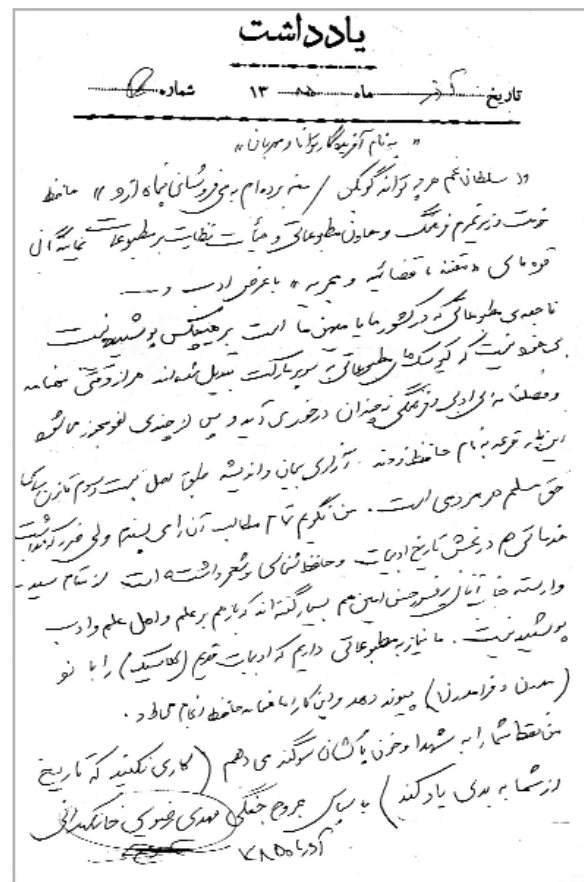 یادداشت
تاریخ آذر ماه ۸۵ ۱۳ شماره
« به نام آفریدگار توانا و مهربان »
« سلطان غم هر چه تواند گو بکن / من برده‌ام به می فروشان پناه ازو » حافظ
خدمت وزیر محترم فرهنگ و معاون مطبوعاتی و هیأت نظارت بر مطبوعات نمایندگان
قوه‌های « مقننه ، قضائیه و مجریه » با عرض ادب و
فاجعه‌ی مطبوعاتی که در کشور ما یا میهن ما است بر هیچکس پوشیده نیست
نیست که کیوسک‌های مطبوعاتی به سوپرمارکت تبدیل شده‌اند هر از گاهی ماهنامه
و فصلنامه‌ی ادبی و فرهنگی نه چندان درخوری آید و پس از چندی لغو مجوز می‌شود
این بار قرعه به نام حافظ زدند . آزادی بیان و اندیشه طبق اصل بیست و سوم قانون اساسی
حق مسلم هر مردمی است . من نگویم تمام مطالب آن را می‌پسندم ولی
خدماتی هم در بخش تاریخ ادبیات و حافظ شناسی و شعر داشته است از مقام
وارسته جناب آقای پرفسور حسن امین هم بسیار گفته‌اند که باز هم بر علم و اهل علم و ادب
پوشیده نیست . ما نیاز به مطبوعاتی داریم که ادبیات قدیم (کلاسیک) را با نو
(مدرن و فرامدرن) پیوند دهد و این کار را ماهنامه حافظ انجام می‌داد .
من فقط شما را به شهدا و خون پاکشان سوگند می‌دهم ( کاری نکنید که تاریخ
از شما به بدی یاد کند ) با سپاس مجروح جنگی مهدی رضوی
آذرماه ۸۵